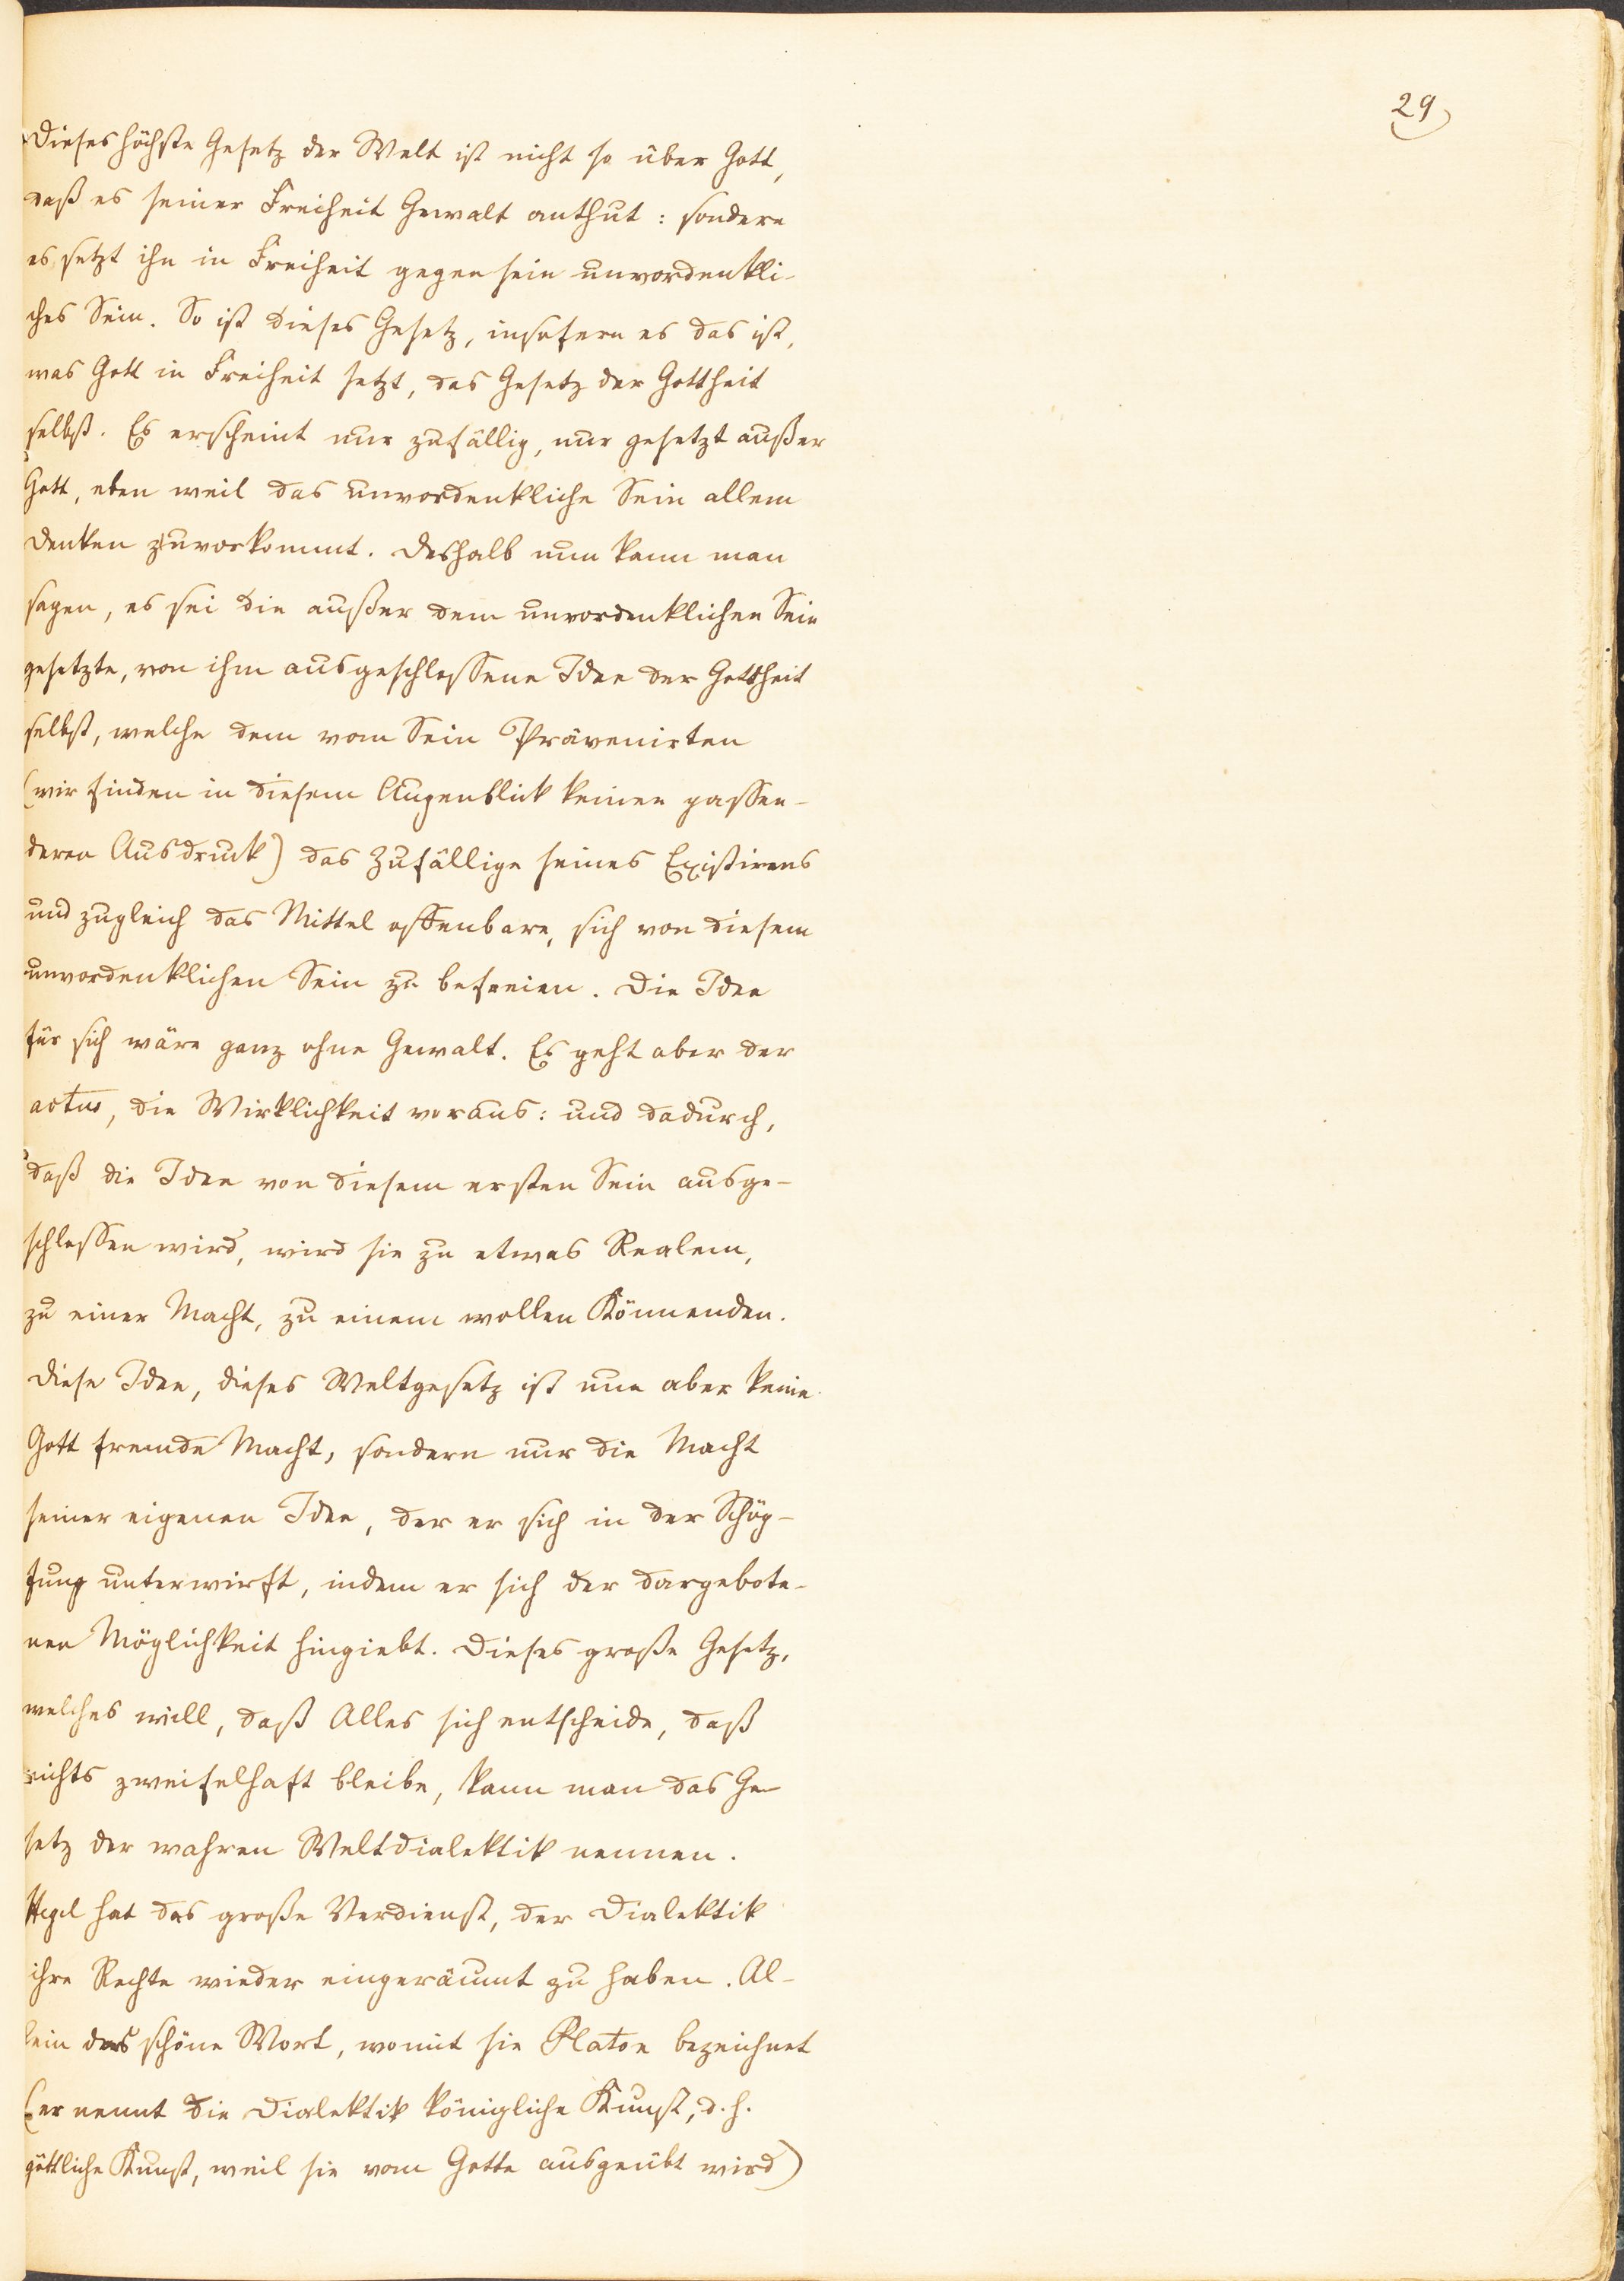 29
Dieses höchste Gesetz der Welt ist nicht so über Gott,
daß es seiner Freiheit Gewalt anthut: sondern
es setzt ihn in Freiheit gegen sein unvordenkli-
ches Sein. So ist dieses Gesetz, insofern es das ist,
was Gott in Freiheit setzt, das Gesetz der Gottheit
selbst. Es erscheint nur zufällig, nur gesetzt außer
Gott, eben weil das unvordenkliche Sein allem
Denken zuvorkommt. Deshalb nun kann man
sagen, es sei die außer dem unvordenklichen Sein
gesetzte, von ihm ausgeschlossene Idee der Gottheit
selbst, welche dem vom Sein Prävenirten
(wir finden in diesem Augenblick keinen passen-
deren Ausdruck) das Zufällige seines Existirens
und zugleich das Mittel offenbare, sich von diesem
unvordenklichen Sein zu befreien. Die Idee
für sich wäre ganz ohne Gewalt. Es geht aber der
actus, die Wirklichkeit voraus: und dadurch,
daß die Idee von diesem ersten Sein ausge-
schlossen wird, wird sie zu etwas Realem,
zu einer Macht, zu einem wollen Könnenden.
Diese Idee, dieses Weltgesetz ist nun aber keine
Gott fremde Macht, sondern nur die Macht
seiner eigenen Idee, der er sich in der Schöp-
fung unterwirft, indem er sich der dargebote-
nen Möglichkeit hingiebt. Dieses große Gesetz,
welches will, daß Alles sich entscheide, daß
nichts zweifelhaft bleibe, kann man das Ge
setz der wahren Weltdialektik nennen.
Hegel hat das große Verdienst, der Dialektik
ihre Rechte wieder eingeräumt zu haben. Al-
lein das schöne Wort, womit sie Platon bezeichnet
(er nennt die Dialektik königliche Kunst, d. h.
göttliche Kunst, weil sie vom Gotte ausgeübt wird)